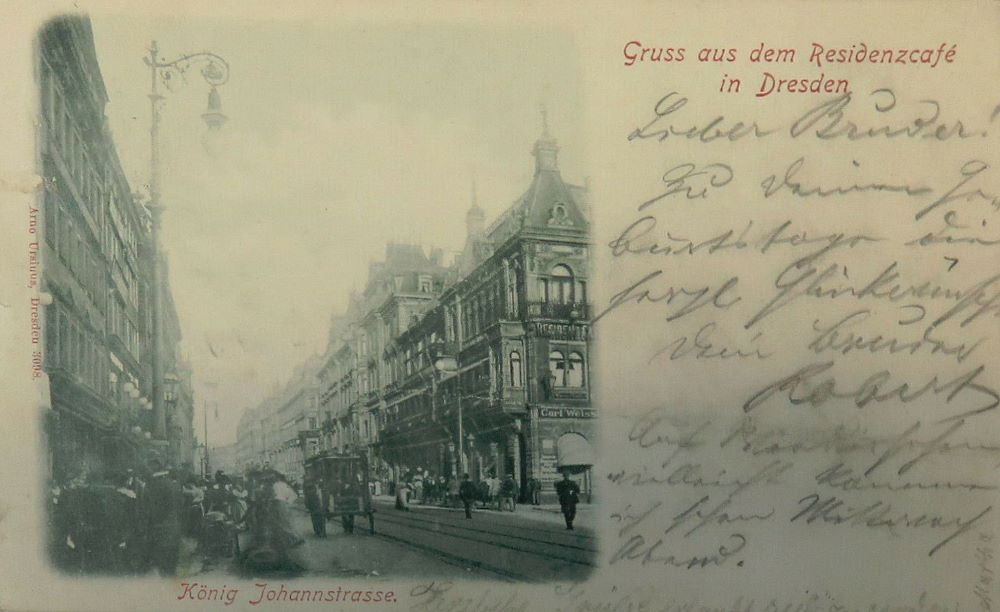 Gruss aus dem Residenzcafé
in Dresden
Lieber Bruder!
Zu Deinem Ge-
burtstage die
herzl. Glückwünsche
Dein Bruder
Robert
Auf Wiedersehen
vielleicht komme
ich schon Mittwoch
Abend.
Martha
Arno Ursinus, Dresden 3098.
RESIDENZ
Carl Weiss
König Johannstrasse.
Herzliche Grüße